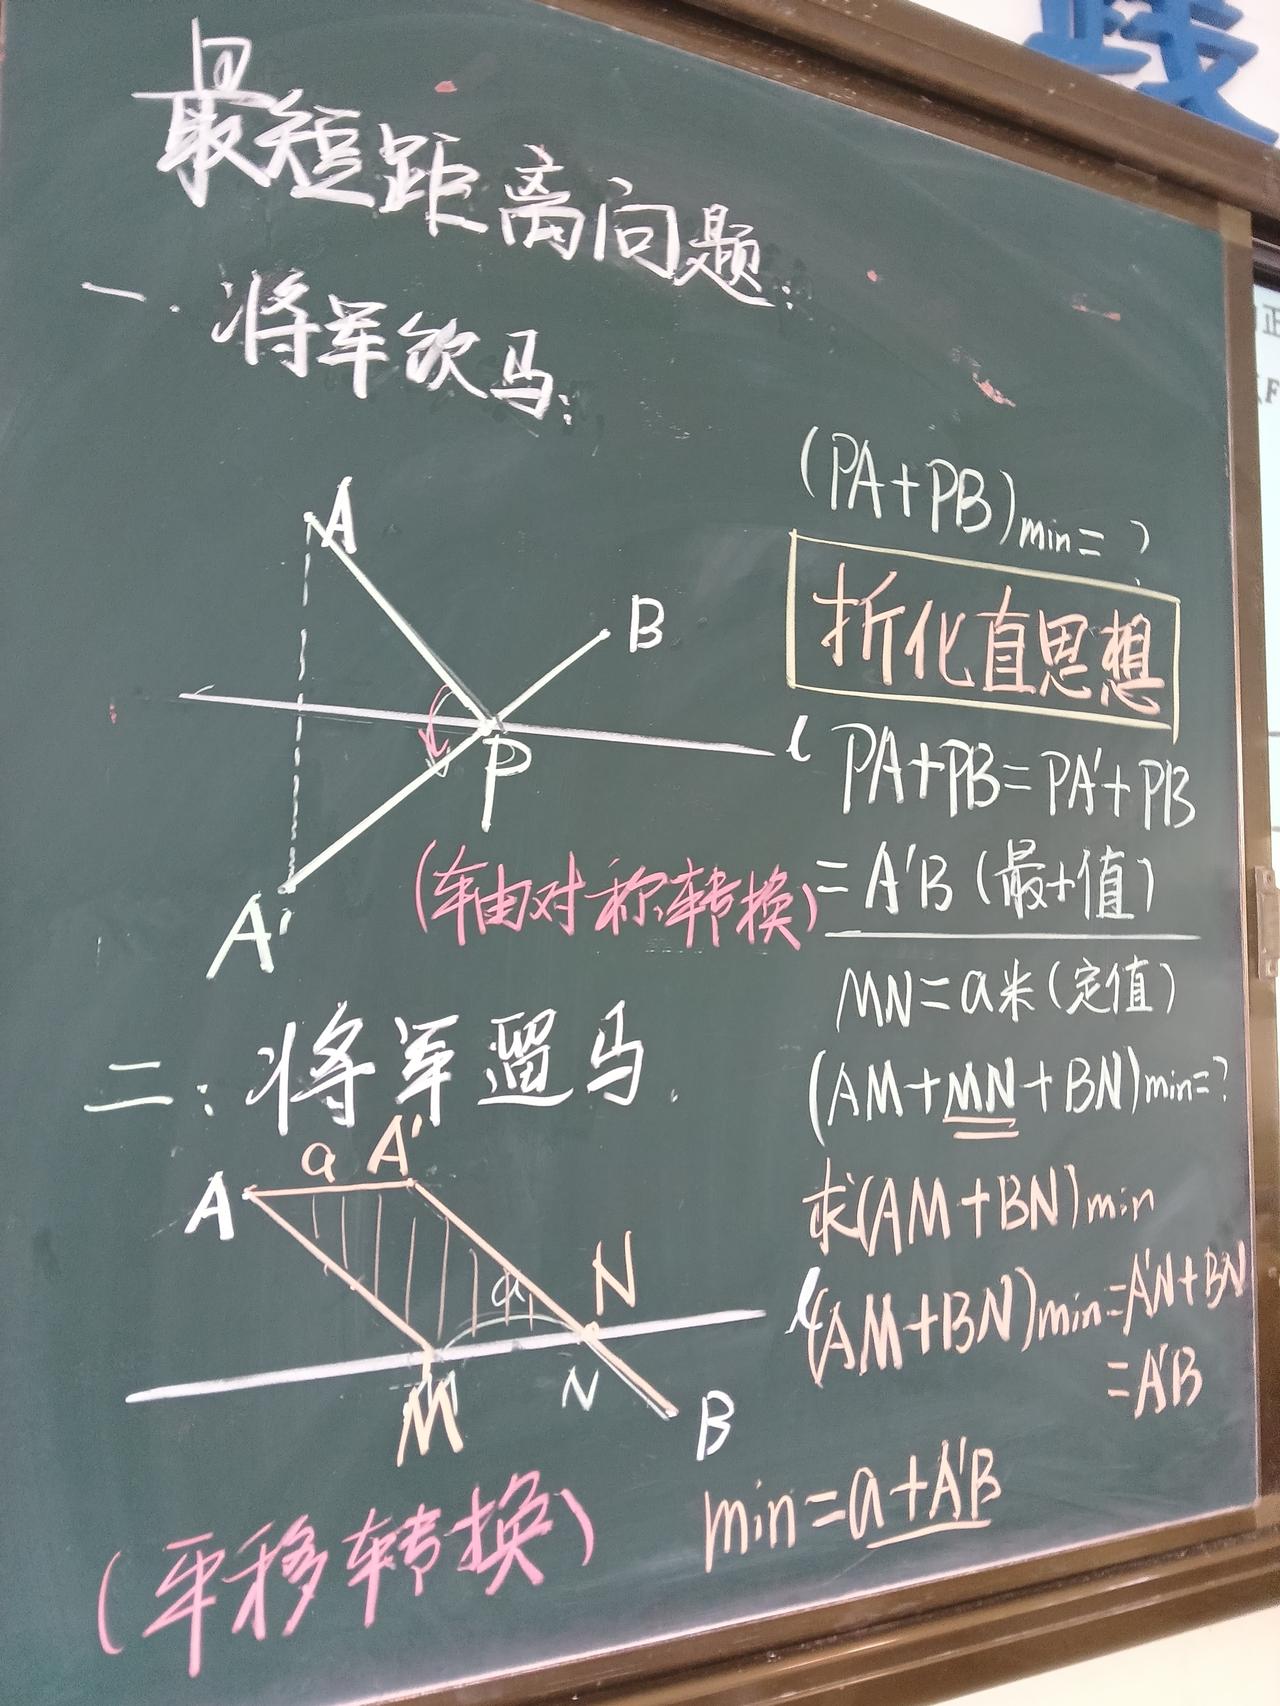 最短距离问题:
一.将军饮马:
A
B
l
P
A'
(轴对称转换)
(PA+PB)min=?
折化直思想
PA+PB=PA'+PB
=A'B(最小值)
二:将军遛马.
a
A'
A
a
N
l
M
N
B
(平移转换)
MN=a米(定值)
(AM+MN+BN)min=?
求(AM+BN)min
(AM+BN)min=A'N+BN
=A'B
min=a+A'B
践
正
F